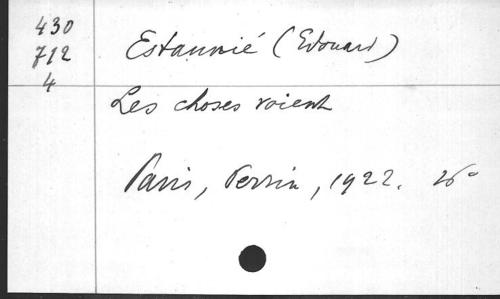 430
712
4
Estaunié (Edouard)
Les choses voient
Paris, Perrin, 1922.